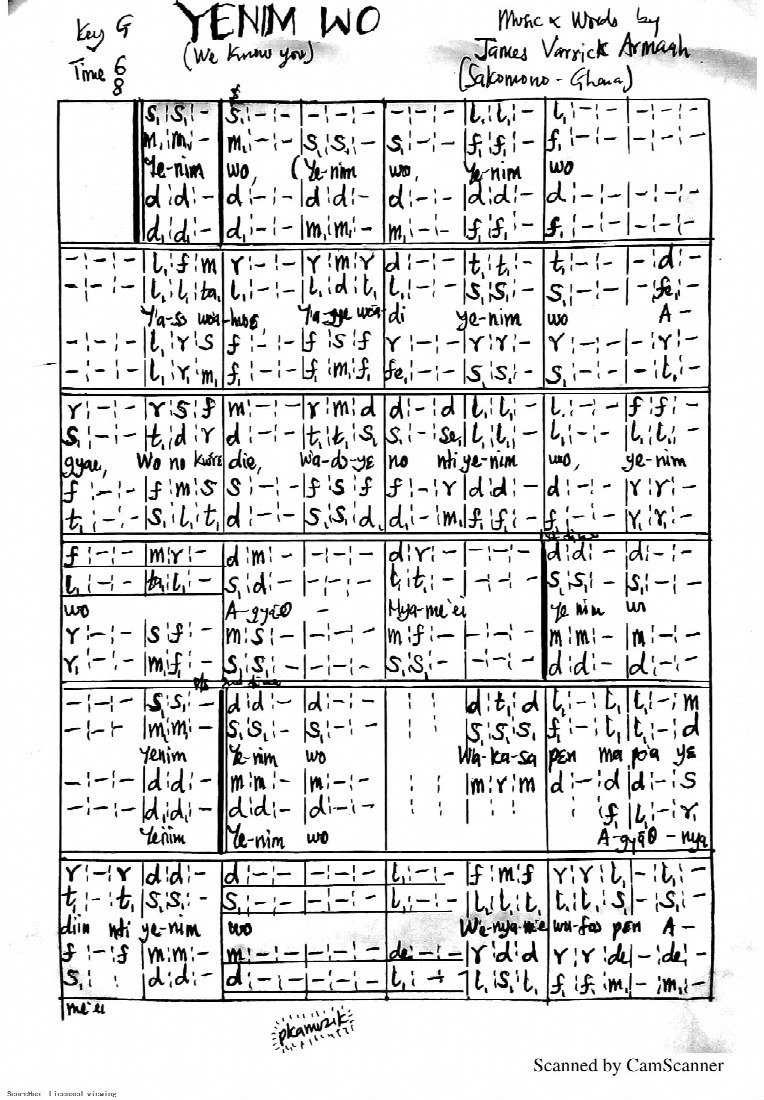 Key G
YENIM WO
Music & Words by
(We Know you)
James Varrick Armaah
Time 6
8
(Sakomono - Ghana)
S, ¦ S, ¦ - | S, ¦ - ¦ - | - ¦ - ¦ - | - ¦ - ¦ - | t, ¦ t, ¦ - | t, ¦ - ¦ - | - ¦ - ¦ -
m, ¦ m, ¦ - | m, ¦ - ¦ - | S, ¦ S, ¦ - | S, ¦ - ¦ - | f, ¦ f, ¦ - | f, ¦ - ¦ - | - ¦ - ¦ -
Ye-nim wo, (Ye-nim wo, Ye-nim wo
d ¦ d ¦ - | d ¦ - ¦ - | d ¦ d ¦ - | d ¦ - ¦ - | d ¦ d ¦ - | d ¦ - ¦ - | - ¦ - ¦ -
d, ¦ d, ¦ - | d, ¦ - ¦ - | m, ¦ m, ¦ - | m, ¦ - ¦ - | f, ¦ f, ¦ - | f, ¦ - ¦ - | - ¦ - ¦ -
- ¦ - ¦ - | l, ¦ f ¦ m | r ¦ - ¦ - | r ¦ m ¦ r | d ¦ - ¦ - | t, ¦ t, ¦ - | t, ¦ - ¦ - | - ¦ d ¦ -
- ¦ - ¦ - | l, ¦ l, ¦ ta, | l, ¦ - ¦ - | l, ¦ d ¦ t, | l, ¦ - ¦ - | S, ¦ S, ¦ - | S, ¦ - ¦ - | - ¦ fe, ¦ -
di ye-nim wo A-
- ¦ - ¦ - | l, ¦ r ¦ s | f ¦ - ¦ - | f ¦ s ¦ f | r ¦ - ¦ - | r ¦ r ¦ - | r ¦ - ¦ - | - ¦ r ¦ -
- ¦ - ¦ - | l, ¦ r, ¦ m, | f, ¦ - ¦ - | f, ¦ m, ¦ f, | fe, ¦ - ¦ - | S, ¦ S, ¦ - | S, ¦ - ¦ - | - ¦ t, ¦ -
r ¦ - ¦ - | r ¦ s ¦ f | m ¦ - ¦ - | r ¦ m ¦ d | d ¦ - ¦ d | l, ¦ l, ¦ - | l, ¦ - ¦ - | f ¦ f ¦ -
S, ¦ - ¦ - | t, ¦ d ¦ r | d ¦ - ¦ - | t, ¦ t, ¦ S, | S, ¦ - ¦ Se, | l, ¦ l, ¦ - | l, ¦ - ¦ - | l, ¦ l, ¦ -
gyae, Wo no die, wa-do-yɛ no nti ye-nim wo, ye-nim
f ¦ - ¦ - | f ¦ m ¦ s | s ¦ - ¦ - | f ¦ s ¦ f | f ¦ - ¦ r | d ¦ d ¦ - | d ¦ - ¦ - | r ¦ r ¦ -
t, ¦ - ¦ - | S, ¦ l, ¦ t, | d ¦ - ¦ - | S, ¦ S, ¦ d, | d, ¦ - ¦ m, | f, ¦ f, ¦ - | f, ¦ - ¦ - | r, ¦ r, ¦ -
f ¦ - ¦ - | m ¦ r ¦ - | d ¦ m ¦ - | - ¦ - ¦ - | d ¦ r ¦ - | - ¦ - ¦ - | d ¦ d ¦ - | d ¦ - ¦ -
l, ¦ - ¦ - | ta, ¦ l, ¦ - | S, ¦ d ¦ - | - ¦ - ¦ - | t, ¦ t, ¦ - | - ¦ - ¦ - | S, ¦ S, ¦ - | S, ¦ - ¦ -
wo A-gyaa - Nya-me'ei Ye nim wo
r ¦ - ¦ - | s ¦ f ¦ - | m ¦ s ¦ - | - ¦ - ¦ - | m ¦ f ¦ - | - ¦ - ¦ - | m ¦ m ¦ - | m ¦ - ¦ -
r, ¦ - ¦ - | m, ¦ f, ¦ - | S, ¦ S, ¦ - | - ¦ - ¦ - | S, ¦ S, ¦ - | - ¦ - ¦ - | d ¦ d ¦ - | d ¦ - ¦ -
D/S 2nd time
- ¦ - ¦ - | S, ¦ S, ¦ - | d ¦ d ¦ - | d ¦ - ¦ - | ¦ ¦ | d ¦ t, ¦ d | t, ¦ - ¦ t, | t, ¦ - ¦ m
- ¦ - ¦ - | m, ¦ m, ¦ - | S, ¦ S, ¦ - | S, ¦ - ¦ - | ¦ ¦ | S, ¦ S, ¦ S, | f, ¦ - ¦ t, | t, ¦ - ¦ d
Yenim Ye-nim wo Wa-ka-sa pɛn ma poa yɛ
- ¦ - ¦ - | d ¦ d ¦ - | m ¦ m ¦ - | m ¦ - ¦ - | ¦ ¦ | m ¦ r ¦ m | d ¦ - ¦ d | d ¦ - ¦ s
- ¦ - ¦ - | d, ¦ d, ¦ - | d ¦ d ¦ - | d ¦ - ¦ - | ¦ ¦ | ¦ ¦ | ¦ ¦ f, | l, ¦ - ¦ r,
Yenim Ye-nim wo A-gyaa-nya
r ¦ - ¦ r | d ¦ d ¦ - | d ¦ - ¦ - | - ¦ - ¦ - | l, ¦ - ¦ - | f ¦ m ¦ f | r ¦ r ¦ l, | - ¦ l, ¦ -
t, ¦ - ¦ t, | S, ¦ S, ¦ - | S, ¦ - ¦ - | - ¦ - ¦ - | l, ¦ - ¦ - | l, ¦ l, ¦ l, | t, ¦ t, ¦ S, | - ¦ S, ¦ -
diin nti ye-nim wo We-nya-me wa-fas pɛn A-
f ¦ - ¦ f | m ¦ m ¦ - | m ¦ - ¦ - | - ¦ - ¦ - | de ¦ - ¦ - | r ¦ d ¦ d | r ¦ r ¦ de | - ¦ de ¦ -
S, ¦ ¦ | d ¦ d ¦ - | d ¦ - ¦ - | - ¦ - ¦ - | l, ¦ - ¦ - | l, ¦ S, ¦ l, | f, ¦ f, ¦ m, | - ¦ m, ¦ -
me'ei
pkamuzik
Scanned by CamScanner